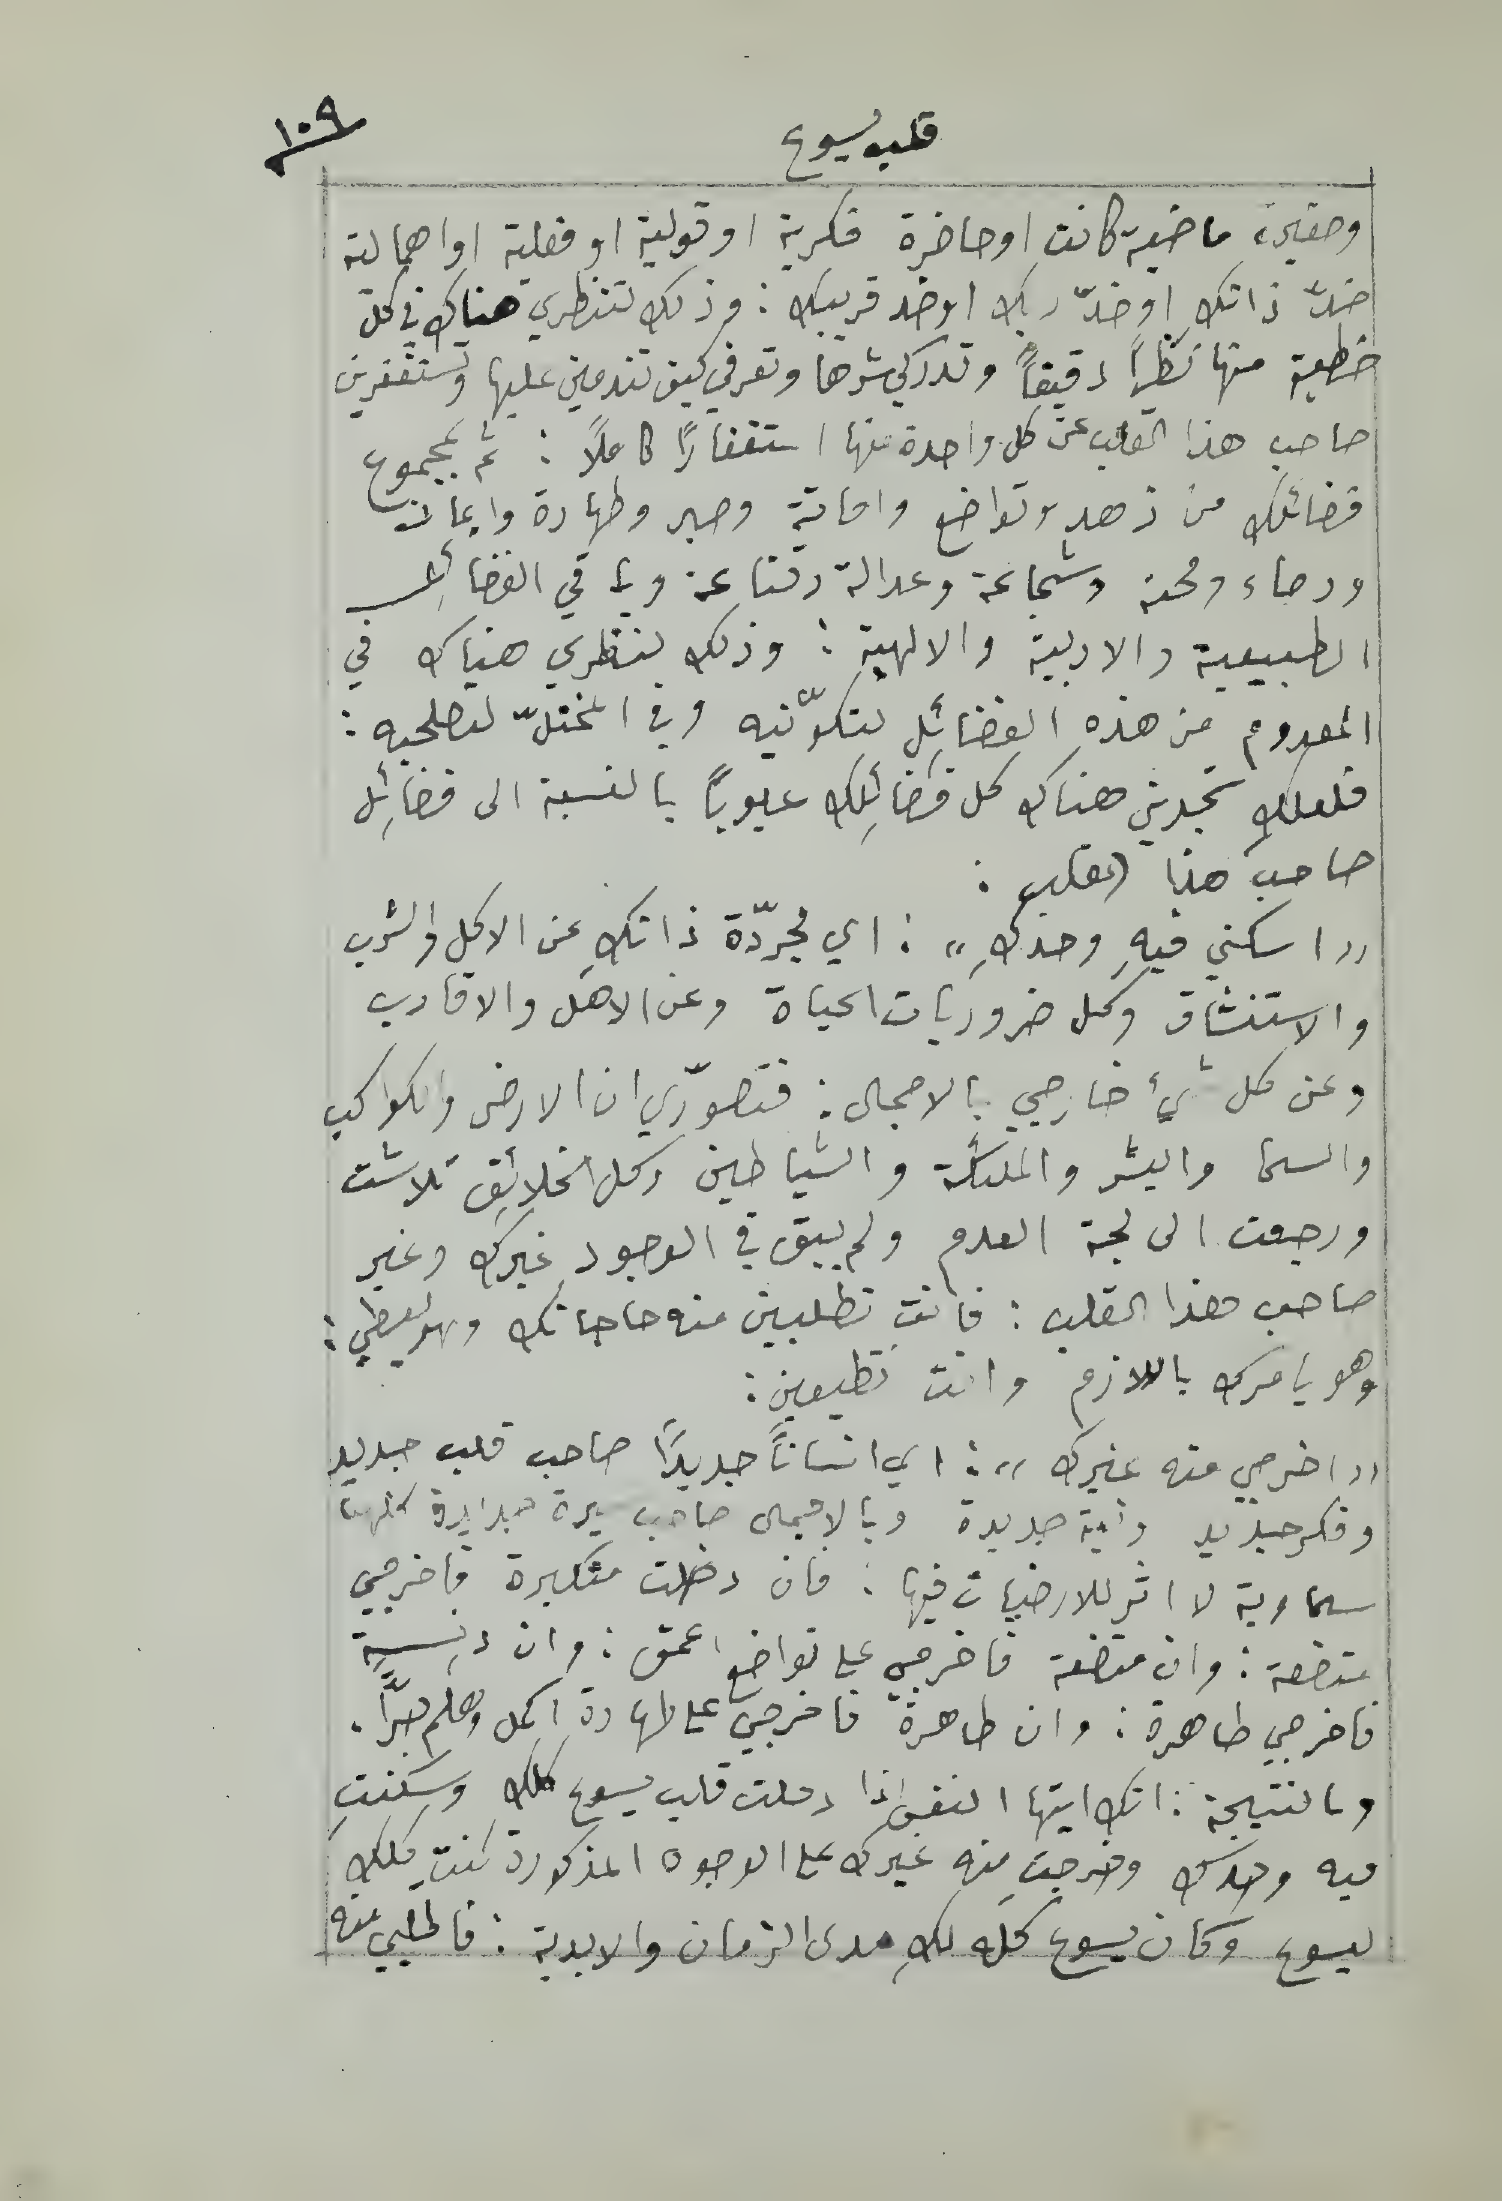 ١٠٩
قلب يسوع
وحقيرة ماضية كانت او حاضرة فكرية او قولية او فعلية او اهمالية
ضدّ ذاتك او ضدّ ربك او ضد قريبك : وذلك لتنظري هناك في كل
خطية منها نظراً دقيقاً وتدركي شرها وتعرفي كيف تندمين عليها وتستغفرين
صاحب هذا القلب عن كل واحدة منها استغفارًا كاملًا : ثم بمجموع
فضائلك من زهد وتواضع وامانة وصبر وطهارة وايمان
ورجاء ومحبة وشجاعة وعدالة وقناعة وباقي الفضائل
الطبيعية والادبية والالهية : وذلك لتنظري هناك في
المعدوم من هذهِ الفضائِل لتكوّنيه وفي المختلّ لتصلحيه :
فلعلكِ تجدين هناك كل فضائِلك عيوبًا بالنسبة الى فضائِل
صاحب هذا القلب :
"اسكني فيهِ وحدكِ" : اي مجرّدة ذاتكِ عن الاكل والشرب
والاستنشاق وكل ضروريات الحياة وعن الاهل والاقارب
وعن كل شيء خارجي بالاجمال : فتصوّري ان الارض والكواكب
والسما والبشر والملئكة والشياطين وكل الخلائِق تلاشت
ورجعت الى لجة العدم ولم يبق في الوجود غيركِ وغير
صاحب هذا القلب : فانتِ تطلبين منه حاجاتك وهو يعطي :
وهو يامرك باللازم وانت تطيعين :
"اخرجي منه غيرك" : اي انساناً جديدًا صاحب قلب جديد
وفكر جديد ونية جديدة وبالاجمال صاحب سيرة جديدة كلها
سماوية لا اثر للارضيات فيها : فان دخلت متكبرة فاخرجي
متضعة : وان متضعة فاخرجي على تواضع اعمق : وان دنِسة
فاخرجي طاهرة : وان طاهرة فاخرجي على طهارة اكمل وهلم جرًّا.
وبالنتيجة : انك ايتها النفس اذا دخلت قلب يسوع كلك وسكنتِ
فيه وحدك وخرجتِ منه غيرك على الوجوه المذكورة كنتِ كلكِ
ليسوع وكان يسوع كله لكِ مدى الزمان والابدية : فاطلبي منه